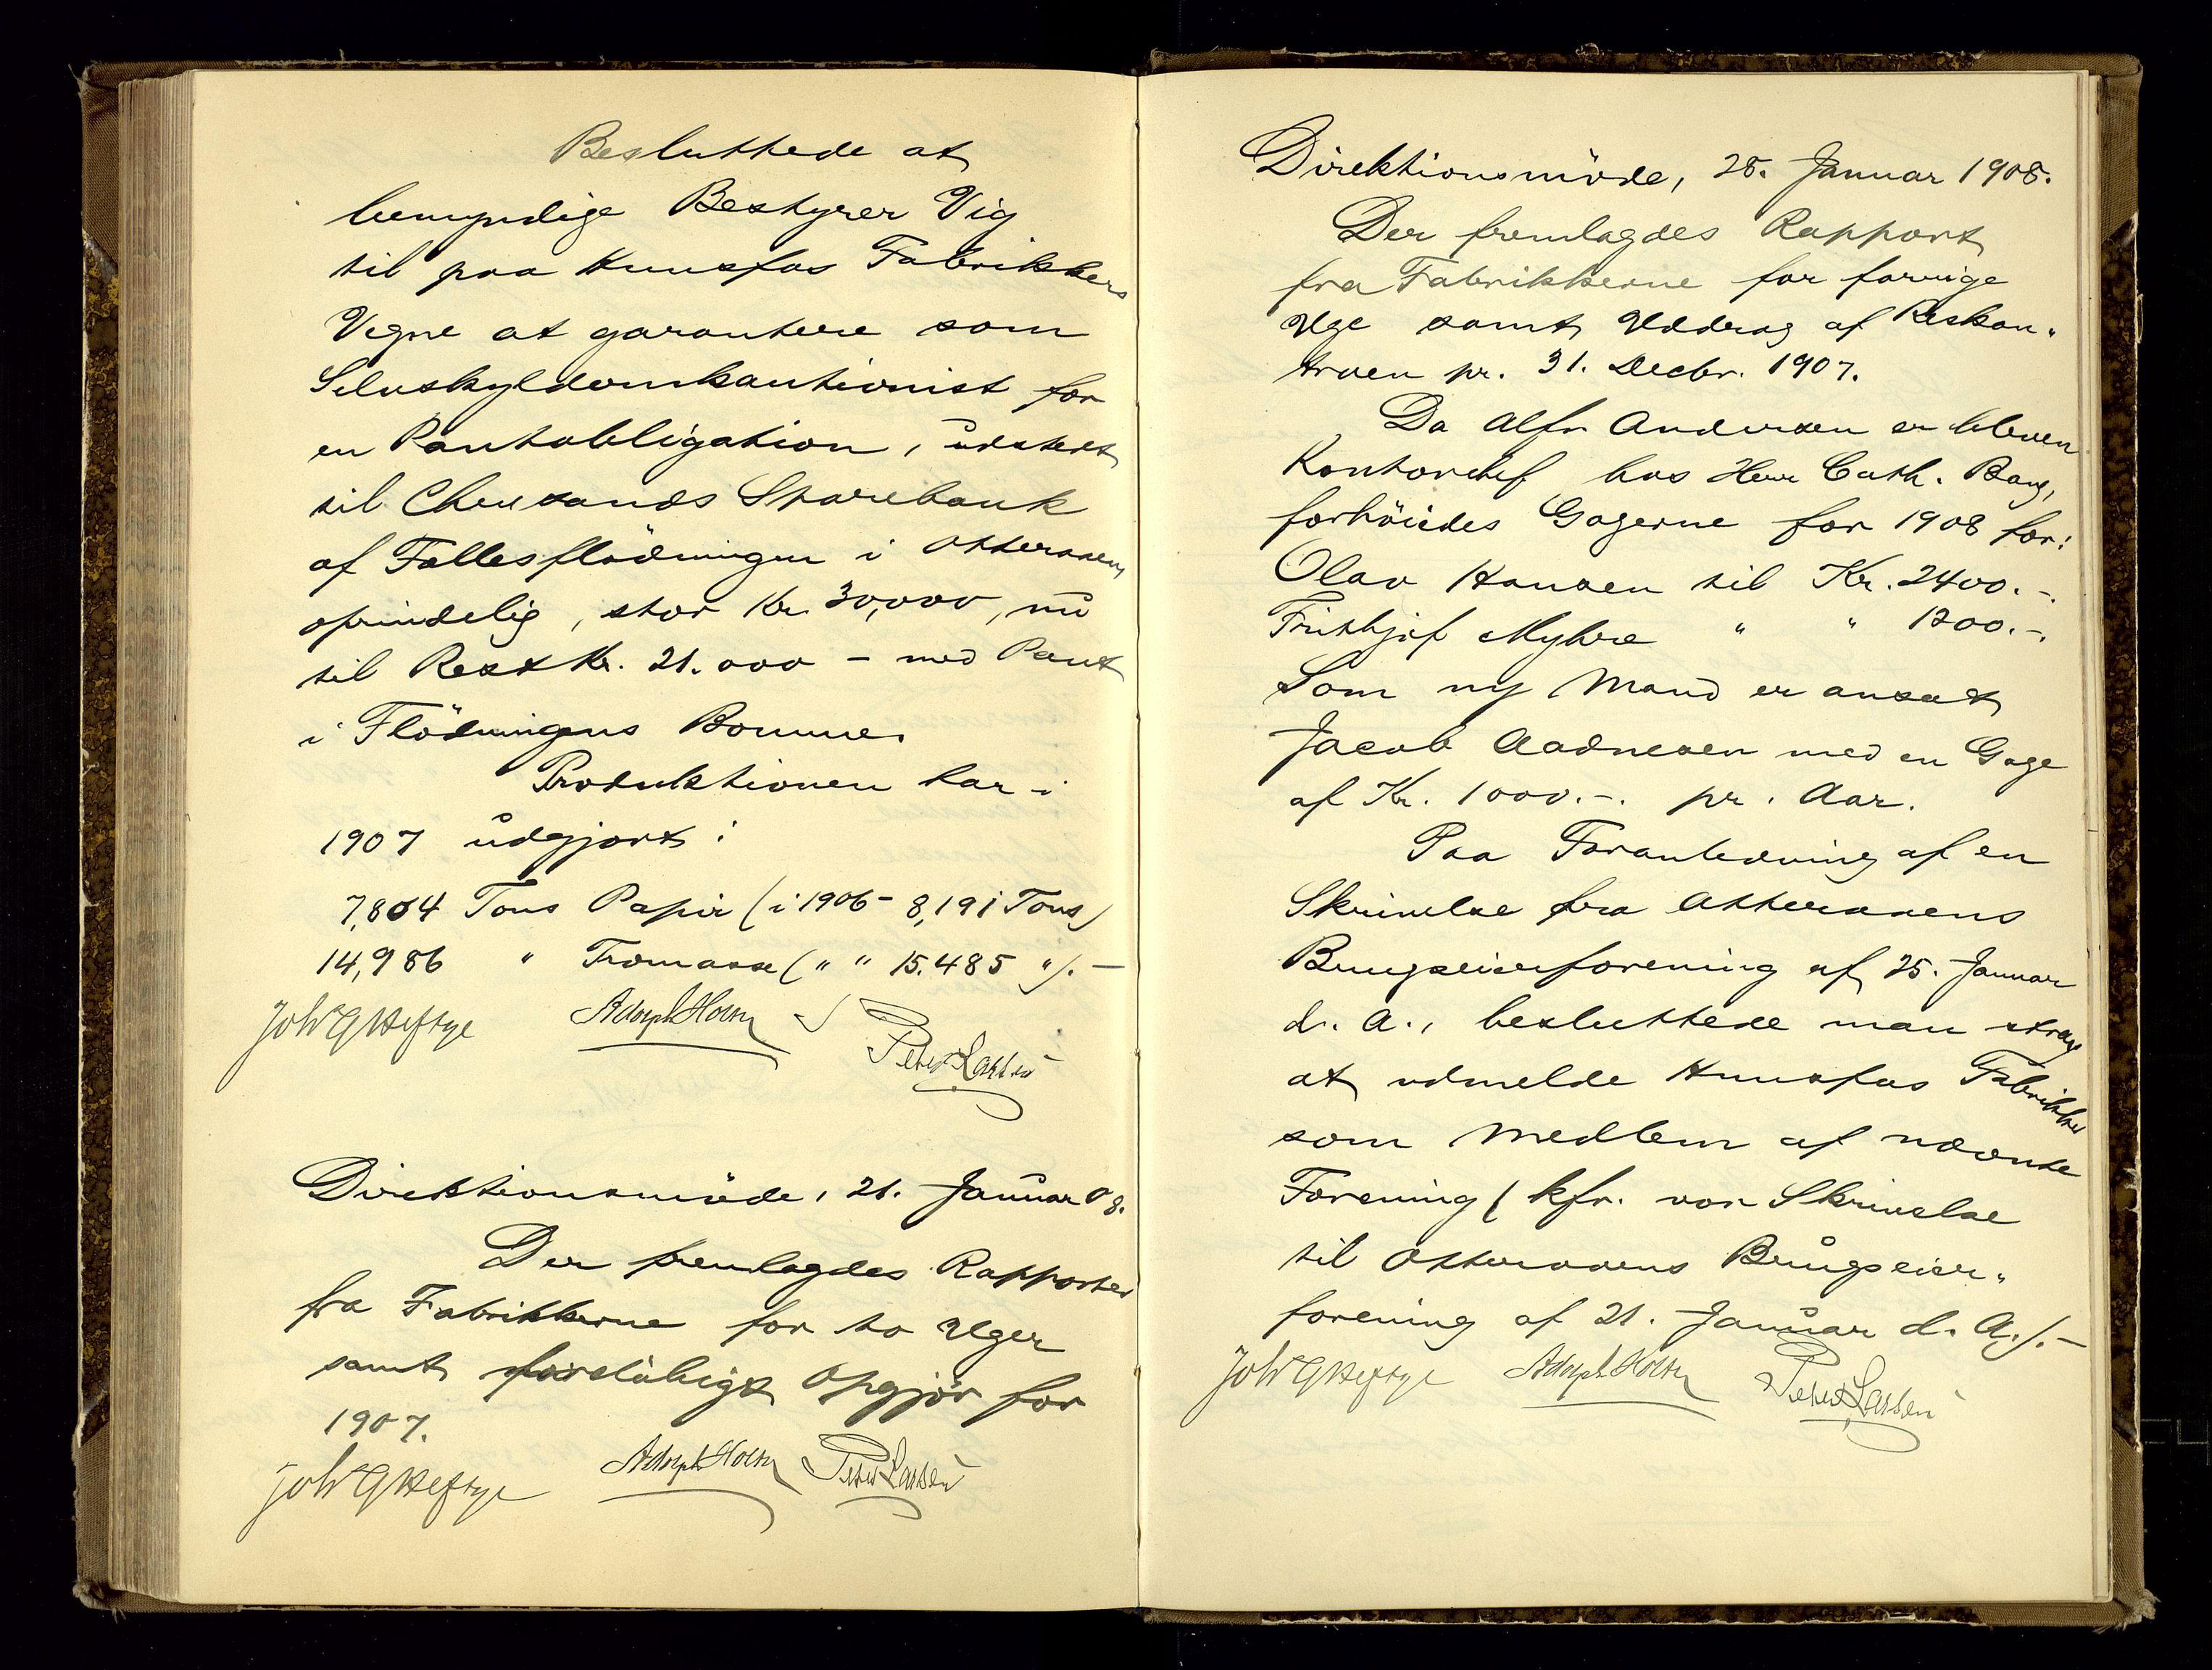 Besluttede at
bemyndige Bestyrer Vig
til paa Hunsfos Fabrikkers
Vegne at garantere som
Selvskyldnerkautionist for
en Pantobligation, udstedt
til Chrissands Sparebank
af Fællesflødningen i Otteraaen,
oprindelig, stor Kr. 30,000, nu
til Rest Kr. 21.000 - med Pant
i Flødningens Bomme.
Produktionen har i
1907 udgjort:
7,804 Tons Papir (i 1906 - 8,191 Tons)
14,986 " Træmasse (" " 15.485 "). -
Joh GHeftye Adolph Holm Peter Larsen
Direktionsmøde, 21. Januar 08.
Der fremlagdes Rapporter
fra Fabrikkerne for to Uger
samt foreløbigt Opgjør for
1907.
Joh GHeftye Adolph Holm Peter Larsen
Direktionsmøde, 28. Januar 1908.
Der fremlagdes Rapport
fra Fabrikkerne for forrige
Uge samt Uddrag af Reskon"
troen pr. 31. Decbr. 1907.
Da Alfr Andersen er bleven
Kontorchef hos Herr Cath. Bang,
forhöiedes Gagerne for 1908 for:
Olav Hansen til Kr. 2400.-.
Frithjof Myhre " " 1200.-.
Som ny Mand er ansat
Jacob Aadnesen med en Gage
af Kr. 1000.-. pr. Aar.
Paa Foranledning af en
Skrivelse fra Otteraaens
Brugseierforening af 25. Januar
d. A., besluttede man strax
at udmelde Hunsfos Fabrikker
som Medlem af nævnte
Forening (kfr. vor Skrivelse
til Otteraaens Brugseier"
forening af 21. Januar d. A.). -
Joh GHeftye Adolph Holm Peter Larsen